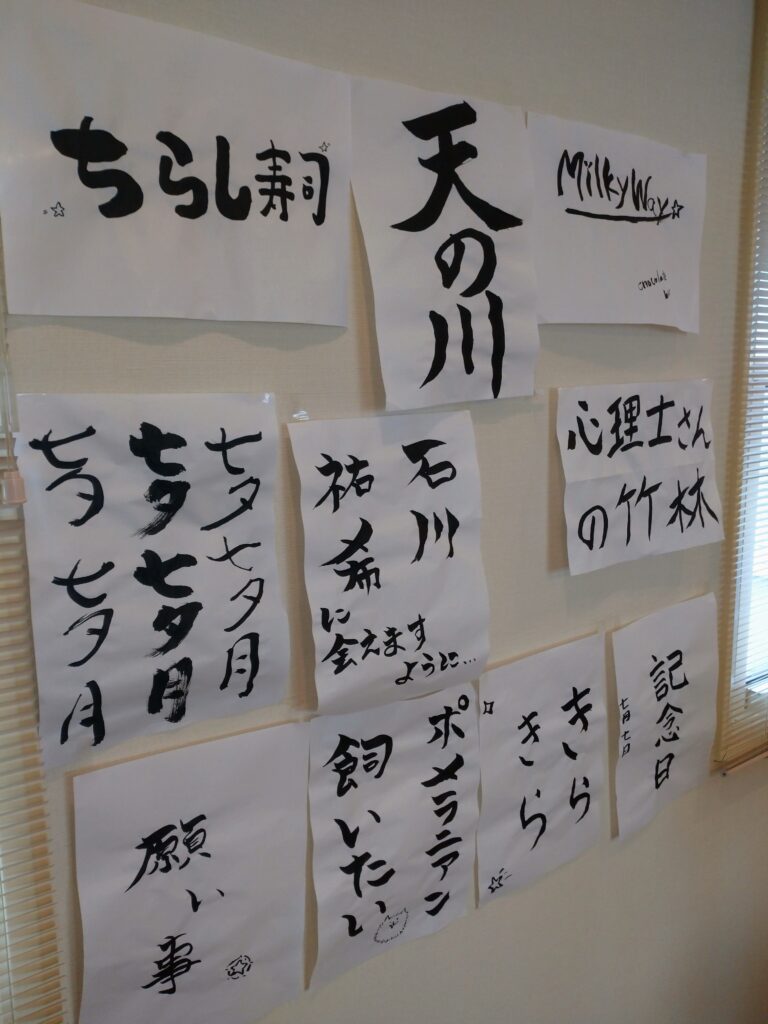 ちらし寿司
天の川
Milky Way
chocolate
七夕 七夕月
七夕 七夕月
七夕 七夕月
石川
祐希
に会えます
ように…
心理士さん
の竹林
願い事
ポメラニアン
飼いたい
きら
きら
記念日
七月七日